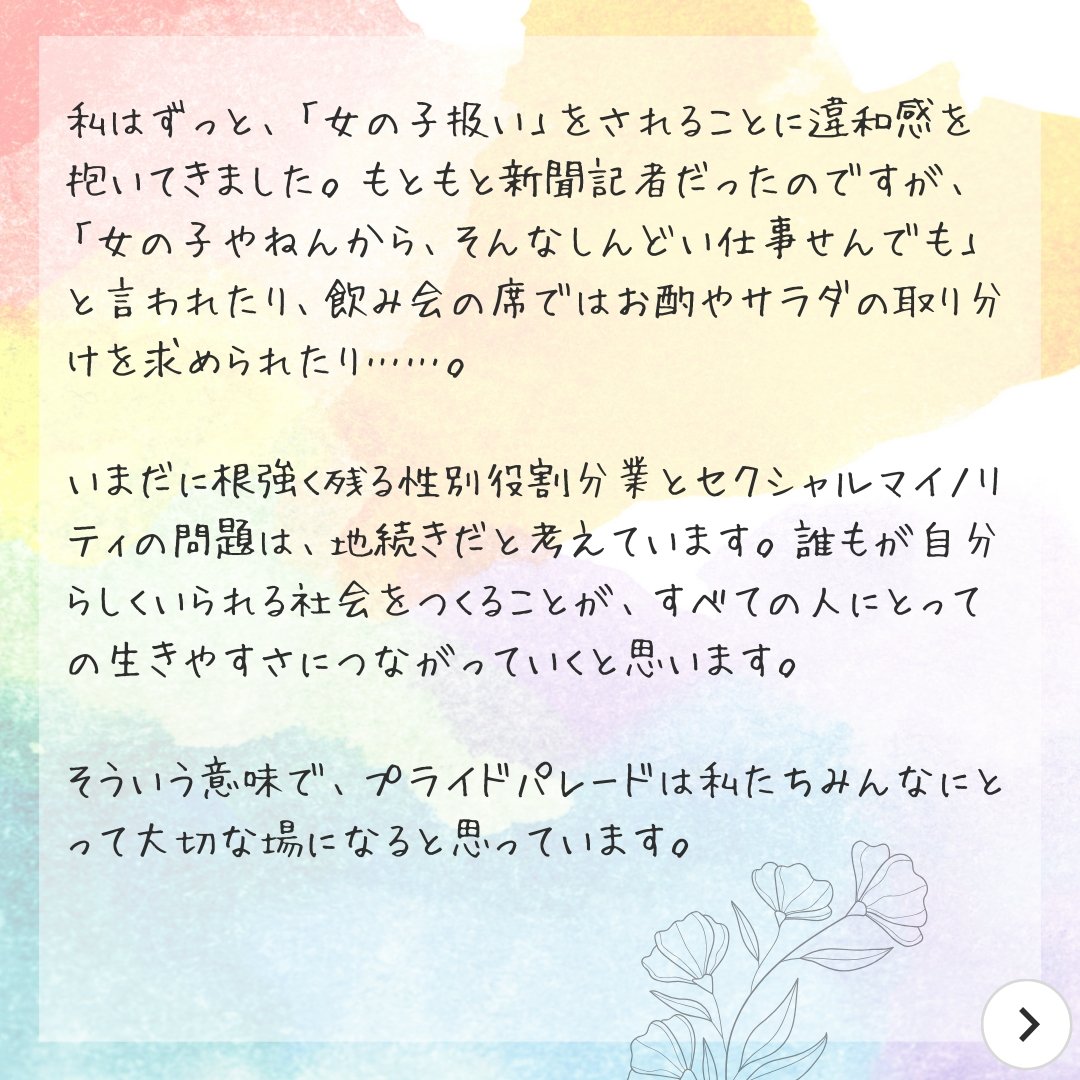 私はずっと、「女の子扱い」をされることに違和感を
抱いてきました。もともと新聞記者だったのですが、
「女の子やねんから、そんなしんどい仕事せんでも」
と言われたり、飲み会の席ではお酌やサラダの取り分
けを求められたり……。
いまだに根強く残る性別役割分業とセクシャルマイノリ
ティの問題は、地続きだと考えています。誰もが自分
らしくいられる社会をつくることが、すべての人にとって
の生きやすさにつながっていくと思います。
そういう意味で、プライドパレードは私たちみんなにと
って大切な場になると思っています。